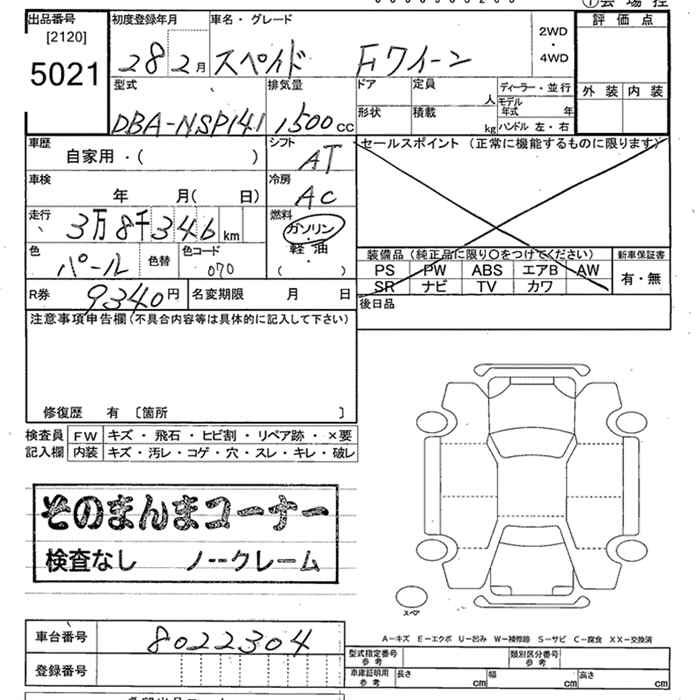 ①会場控
出品番号 初度登録年月 車名・グレード 評価点
[2120]
5021
28 2月 スペイド Fクイーン
2WD
・
4WD
型式 排気量 ドア 定員 ディーラー・並行 外装 内装
人 モデル年式 年
DBA-NSP141 1500cc
形状 積載 kg ハンドル 左・右
車歴 シフト セールスポイント (正常に機能するものに限ります)
自家用・( ) AT
車検 冷房
年 月( 日) AC
走行 燃料
3万8千346km ガソリン
・
軽油
( )
色 色替 色コード
パール 070
装備品 (純正品に限り○をつけてください) 新車保証書
PS PW ABS エアB AW 有・無
SR ナビ TV カワ
R券 9340円 名変期限 月 日 後日品
注意事項申告欄(不具合内容等は具体的に記入して下さい)
修復歴 有 〔箇所 〕
検査員 FW キズ・飛石・ヒビ割・リペア跡・×要
記入欄 内装 キズ・汚レ・コゲ・穴・スレ・キレ・破レ
そのまんまコーナー
検査なし ノークレーム
スペア
A-キズ E-エクボ U-凹み W-補修跡 S-サビ C-腐食 XX-交換済
車台番号 8022304
登録番号
型式指定番号 参考 類別区分番号 参考
車庫証明用 参考 長さ cm 幅 cm 高さ cm